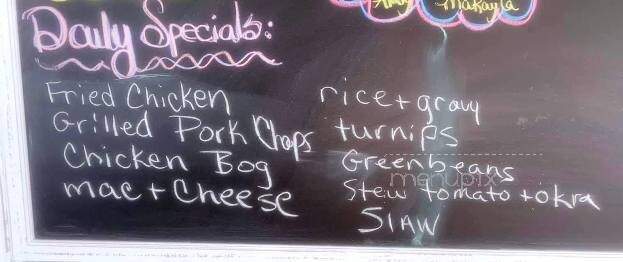 Amy Makayla
Daily Specials:
Fried Chicken
Grilled Pork Chops
Chicken Bog
mac + Cheese
rice + gravy
turnips
Greenbeans
Stew tomato + okra
Slaw
menupix